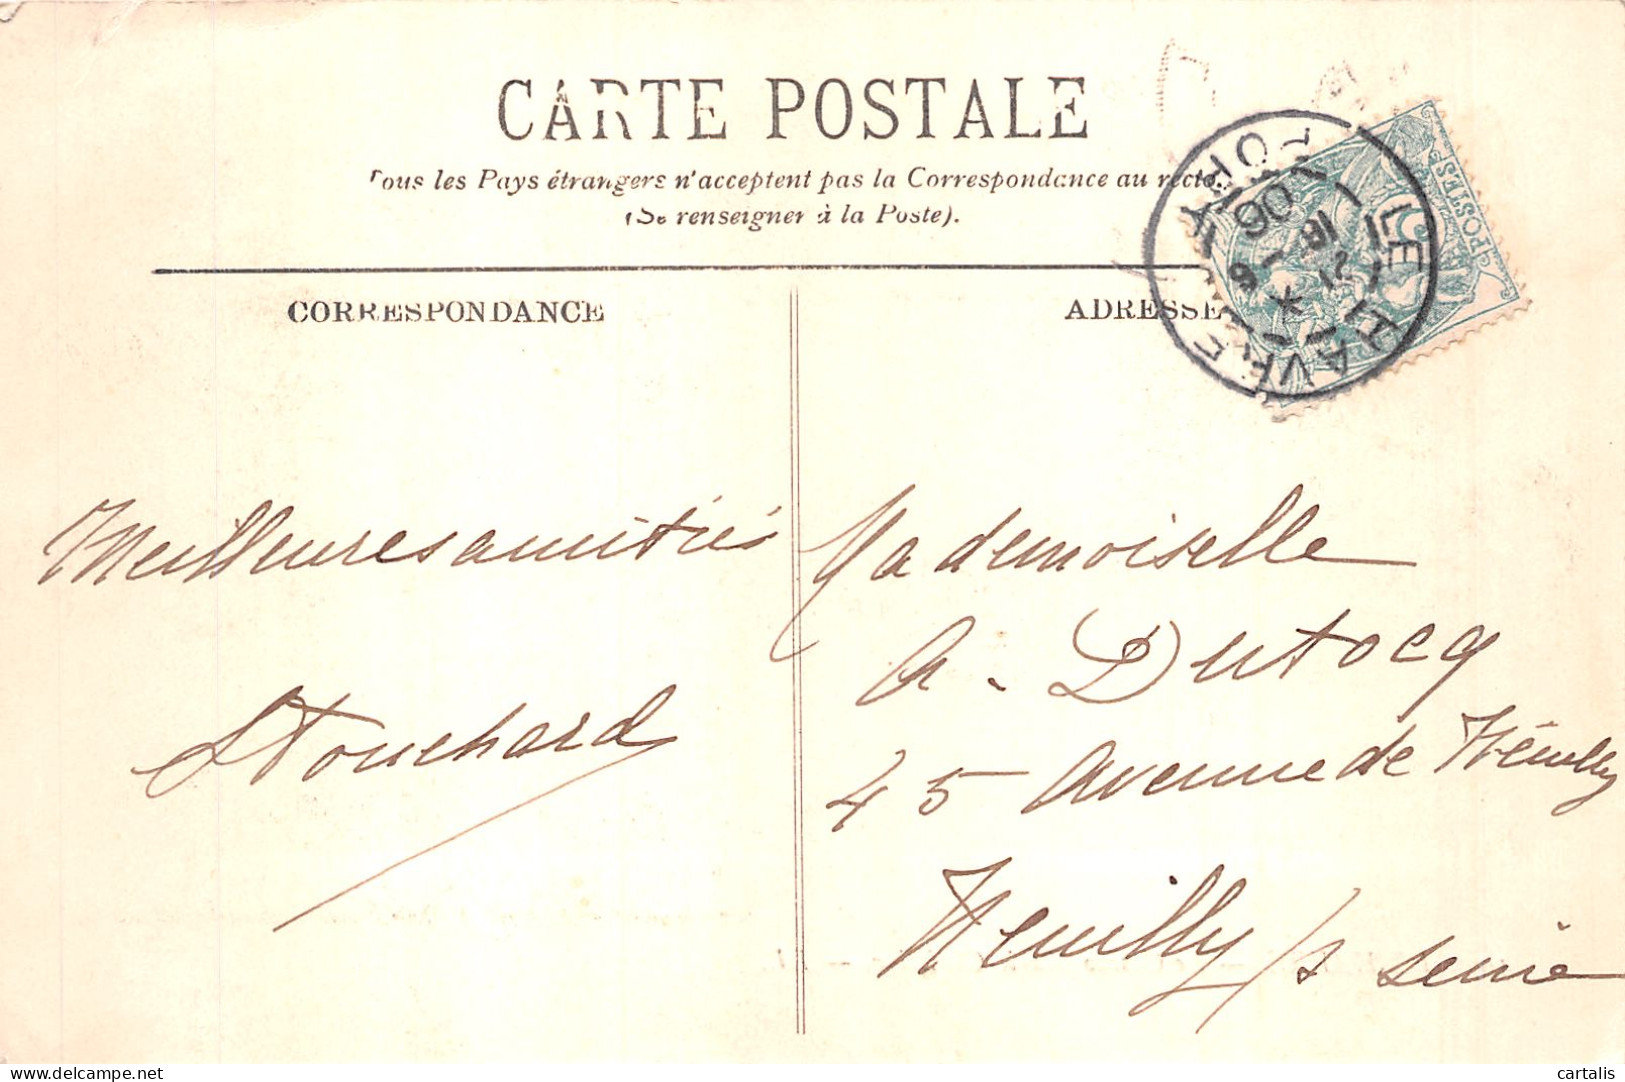 CARTE POSTALE
Tous les Pays étrangers n'acceptent pas la Correspondance au recto.
(Se renseigner à la Poste).
CORRESPONDANCE
ADRESSE
LE HAVRE
POSTES
5
16
06
Meilleures amitiés
Touchard
Mademoiselle
A. Dutocq
45 Avenue de Neuilly
Neuilly s/ Seine
delcampe.net
cartalis